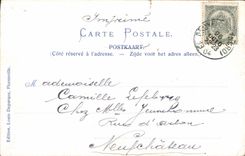 Imprimé
CARTE POSTALE.
POSTKAART.
(Côté réservé à l'adresse. — Zijde voor het adres alleen.)
Mademoiselle
Camille Lefebvre
Chez Melle
Neufchâteau
Edition, Louis Duparque, Florenville.